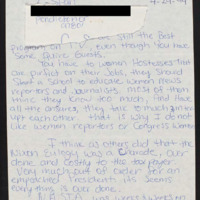 4-24-94
still the Best
program on TV, even though you have
Some quire Guests.
You have to women Hostesses that
are perfect on their Jobs, they should
Start a School to educate women News
reporters and Journalists. most of them
think they know too much, and have
all the answers, they talk to much, inter-
upt each other. that is why I do not
like women reporters or Congress women.
I think as others did that the
Nixon Euleogy was a Charade, over
done and costly to the tax payers.
Very much out of order for an
impeached President, its seems
everything is over done.
N.A.F.T.A. was